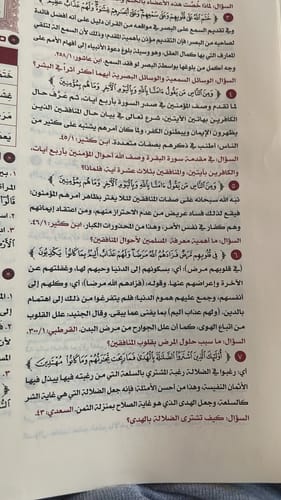 ﴿ خَتَمَ اللَّهُ عَلَىٰ قُلُوبِهِمْ وَعَلَىٰ سَمْعِهِمْ وَعَلَىٰ أَبْصَارِهِمْ غِشَاوَةٌ وَلَهُمْ عَذَابٌ عَظِيمٌ ﴾
وفي تقديم السمع على البصر في مواقعه من القرآن دليل على أنه أفضل فائدة
لصاحبه من البصر؛ فإن التقديم مؤذن بأهمية المقدم؛ وذلك لأن السمع آلة لتلقي
المعارف التي بها كمال العقل، وهو وسيلة بلوغ دعوة الأنبياء إلى أفهام الأمم على
وجه أكمل من بلوغها بواسطة البصر لو فقد السمع. ابن عاشور: ١/
السؤال: الوسائل السمعية والوسائل البصرية أيهما أكثر أثراً في البشر؟
٤ ﴿ وَمِنَ النَّاسِ مَن يَقُولُ آمَنَّا بِاللَّهِ وَبِالْيَوْمِ الْآخِرِ وَمَا هُم بِمُؤْمِنِينَ ﴾
لما تقدم وصف المؤمنين في صدر السورة بأربع آيات، ثم عرّف حال
الكافرين بهاتين الآيتين، شرع تعالى في بيان حال المنافقين الذين
يظهرون الإيمان ويبطنون الكفر، ولما كان أمرهم يشتبه على كثير من
الناس؛ أطنب في ذكرهم بصفات متعددة. ابن كثير:
السؤال: في مقدمة سورة البقرة وصف الله أحوال المؤمنين بأربع آيات،
والكافرين بآيتين، والمنافقين بثلاث عشرة آية، فلماذا؟
٥ ﴿ وَمِنَ النَّاسِ مَن يَقُولُ آمَنَّا بِاللَّهِ وَبِالْيَوْمِ الْآخِرِ وَمَا هُم بِمُؤْمِنِينَ ﴾
نبه الله سبحانه على صفات المنافقين لئلا يغتر بظاهر أمرهم المؤمنون؛
فيقع لذلك فساد عريض من عدم الاحتراز منهم، ومن اعتقاد إيمانهم
وهم كفار في نفس الأمر، وهذا من المحذورات الكبار. ابن كثير: ٤٦/١.
السؤال: ما أهمية معرفة المسلمين لأحوال المنافقين؟
٦ ﴿ فِي قُلُوبِهِم مَّرَضٌ فَزَادَهُمُ اللَّهُ مَرَضًا وَلَهُمْ عَذَابٌ أَلِيمٌ بِمَا كَانُوا يَكْذِبُونَ ﴾
(في قلوبهم مرض) أي: بسكونهم إلى الدنيا وحبهم لها، وغفلتهم عن
الآخرة وإعراضهم عنها. وقوله: (فزادهم الله مرضاً) أي: وكلهم إلى
أنفسهم، وجمع عليهم هموم الدنيا؛ فلم يتفرغوا من ذلك إلى اهتمام
بالدين. (ولهم عذاب أليم) بما يفنى عما يبقى. وقال الجنيد: علل القلوب
من اتباع الهوى، كما أن علل الجوارح من مرض البدن. القرطبي: ٣٠٠/١.
السؤال: ما سبب حلول المرض بقلوب المنافقين؟
٧ ﴿ أُولَٰئِكَ الَّذِينَ اشْتَرَوُا الضَّلَالَةَ بِالْهُدَىٰ فَمَا رَبِحَت تِّجَارَتُهُمْ وَمَا كَانُوا مُهْتَدِينَ ﴾
أي: رغبوا في الضلالة رغبة المشتري بالسلعة التي من رغبته فيها يبذل فيها
الأثمان النفيسة، وهذا من أحسن الأمثلة؛ فإنه جعل الضلالة التي هي غاية الشر
كالسلعة، وجعل الهدى الذي هو غاية الصلاح بمنزلة الثمن. السعدي: ٤٣.
السؤال: كيف تشترى الضلالة بالهدى؟